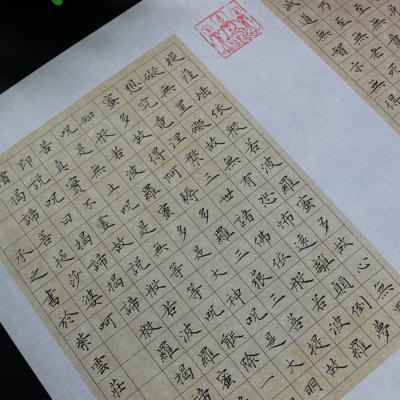 乃至無老死
滅道無智亦無得
提薩埵依般若波羅蜜多故心無
礙無罣礙故無有恐怖遠離顛倒夢
想究竟涅槃三世諸佛依般若波羅
蜜多故得阿耨多羅三藐三菩提故
知般若波羅蜜多是大神咒是大明
咒是無上咒是無等等咒能除一
苦真實不虛故說般若波羅蜜
即說咒曰揭諦揭諦般羅揭諦
揭諦菩提莎婆呵
承之書於紫雲莊